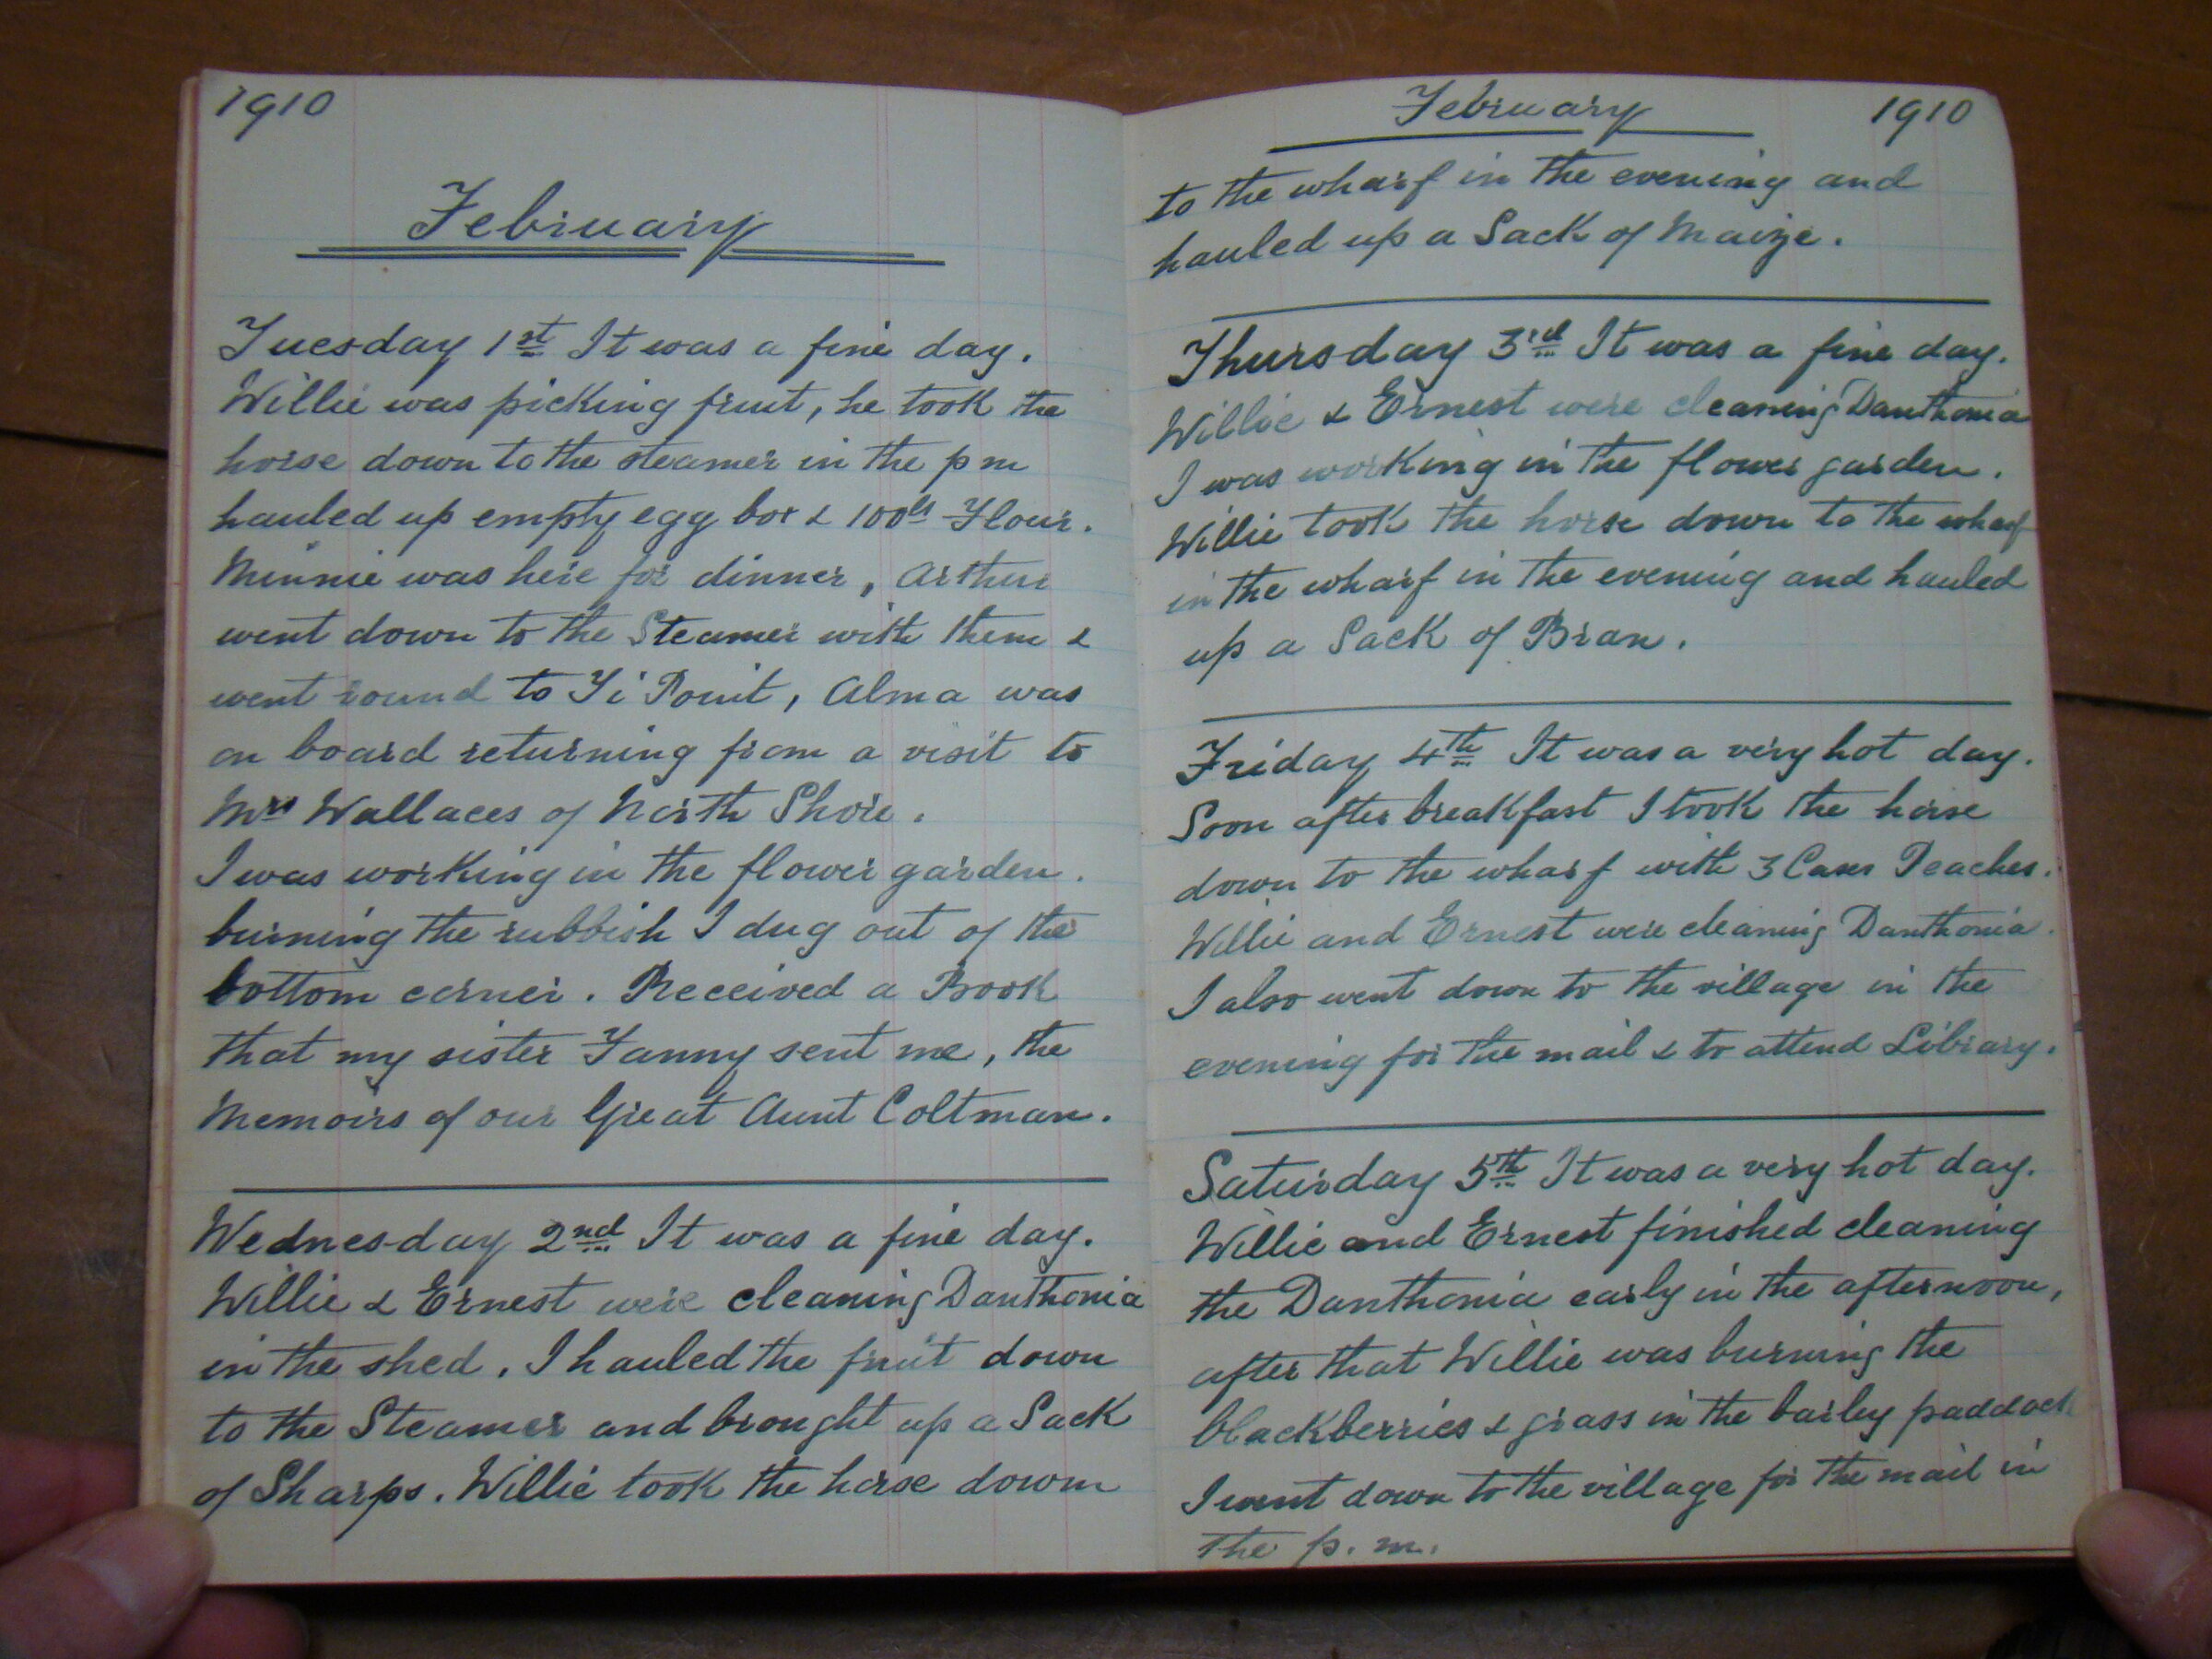 1910
February
Tuesday 1st It was a fine day.
Willie was picking fruit, he took the
horse down to the steamer in the pm
hauled up empty egg box & 100lbs Flour.
Minnie was here for dinner, Arthur
went down to the Steamer with them &
went round to Ti Point, Alma was
on board returning from a visit to
Mrs Wallaces of North Shore.
I was working in the flower garden.
burning the rubbish I dug out of the
bottom corner. Received a Book
that my sister Fanny sent me, the
Memoirs of our Great Aunt Coltman.
Wednesday 2nd It was a fine day.
Willie & Ernest were cleaning Danthonia
in the shed. I hauled the fruit down
to the Steamer and brought up a Sack
of Sharps. Willie took the horse down
February 1910
to the wharf in the evening and
hauled up a Sack of Maize.
Thursday 3rd It was a fine day.
Willie & Ernest were cleaning Danthonia
I was working in the flower garden.
Willie took the horse down to the wharf
in the wharf in the evening and hauled
up a Sack of Bran.
Friday 4th It was a very hot day.
Soon after breakfast I took the horse
down to the wharf with 3 Cases Peaches.
Willie and Ernest were cleaning Danthonia.
I also went down to the village in the
evening for the mail & to attend Library.
Saturday 5th It was a very hot day.
Willie and Ernest finished cleaning
the Danthonia early in the afternoon,
after that Willie was burning the
blackberries & grass in the barley paddock
I went down to the village for the mail in
the p.m.